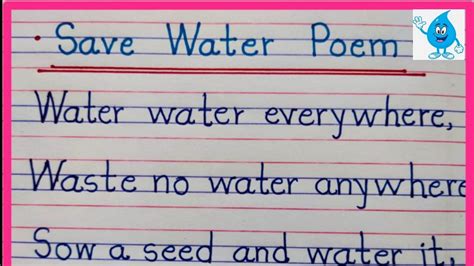 • Save Water Poem
Water water everywhere,
Waste no water anywhere
Sow a seed and water it,